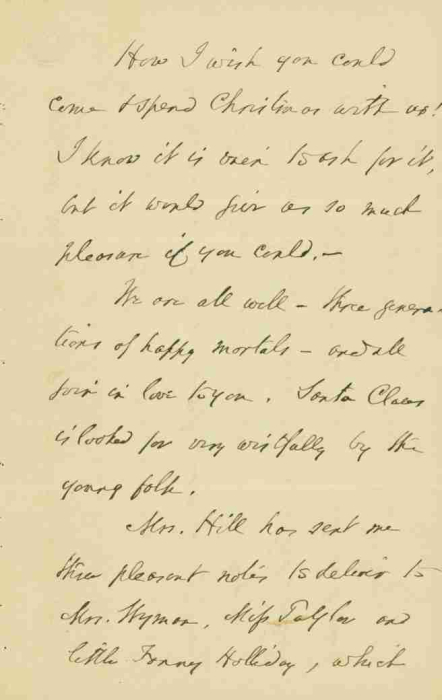 How I wish you could
come & spend Christmas with us!
I know it is vain to ask for it,
but it would give us so much
pleasure if you could. –
We are all well – three genera-
tions of happy mortals – and all
join in love to you. Santa Claus
is looked for very wistfully by the
young folk.
Mrs. Hill has sent me
three pleasant notes to deliver to
Mrs. Wyman, Miss and
little Fanny Holliday, which